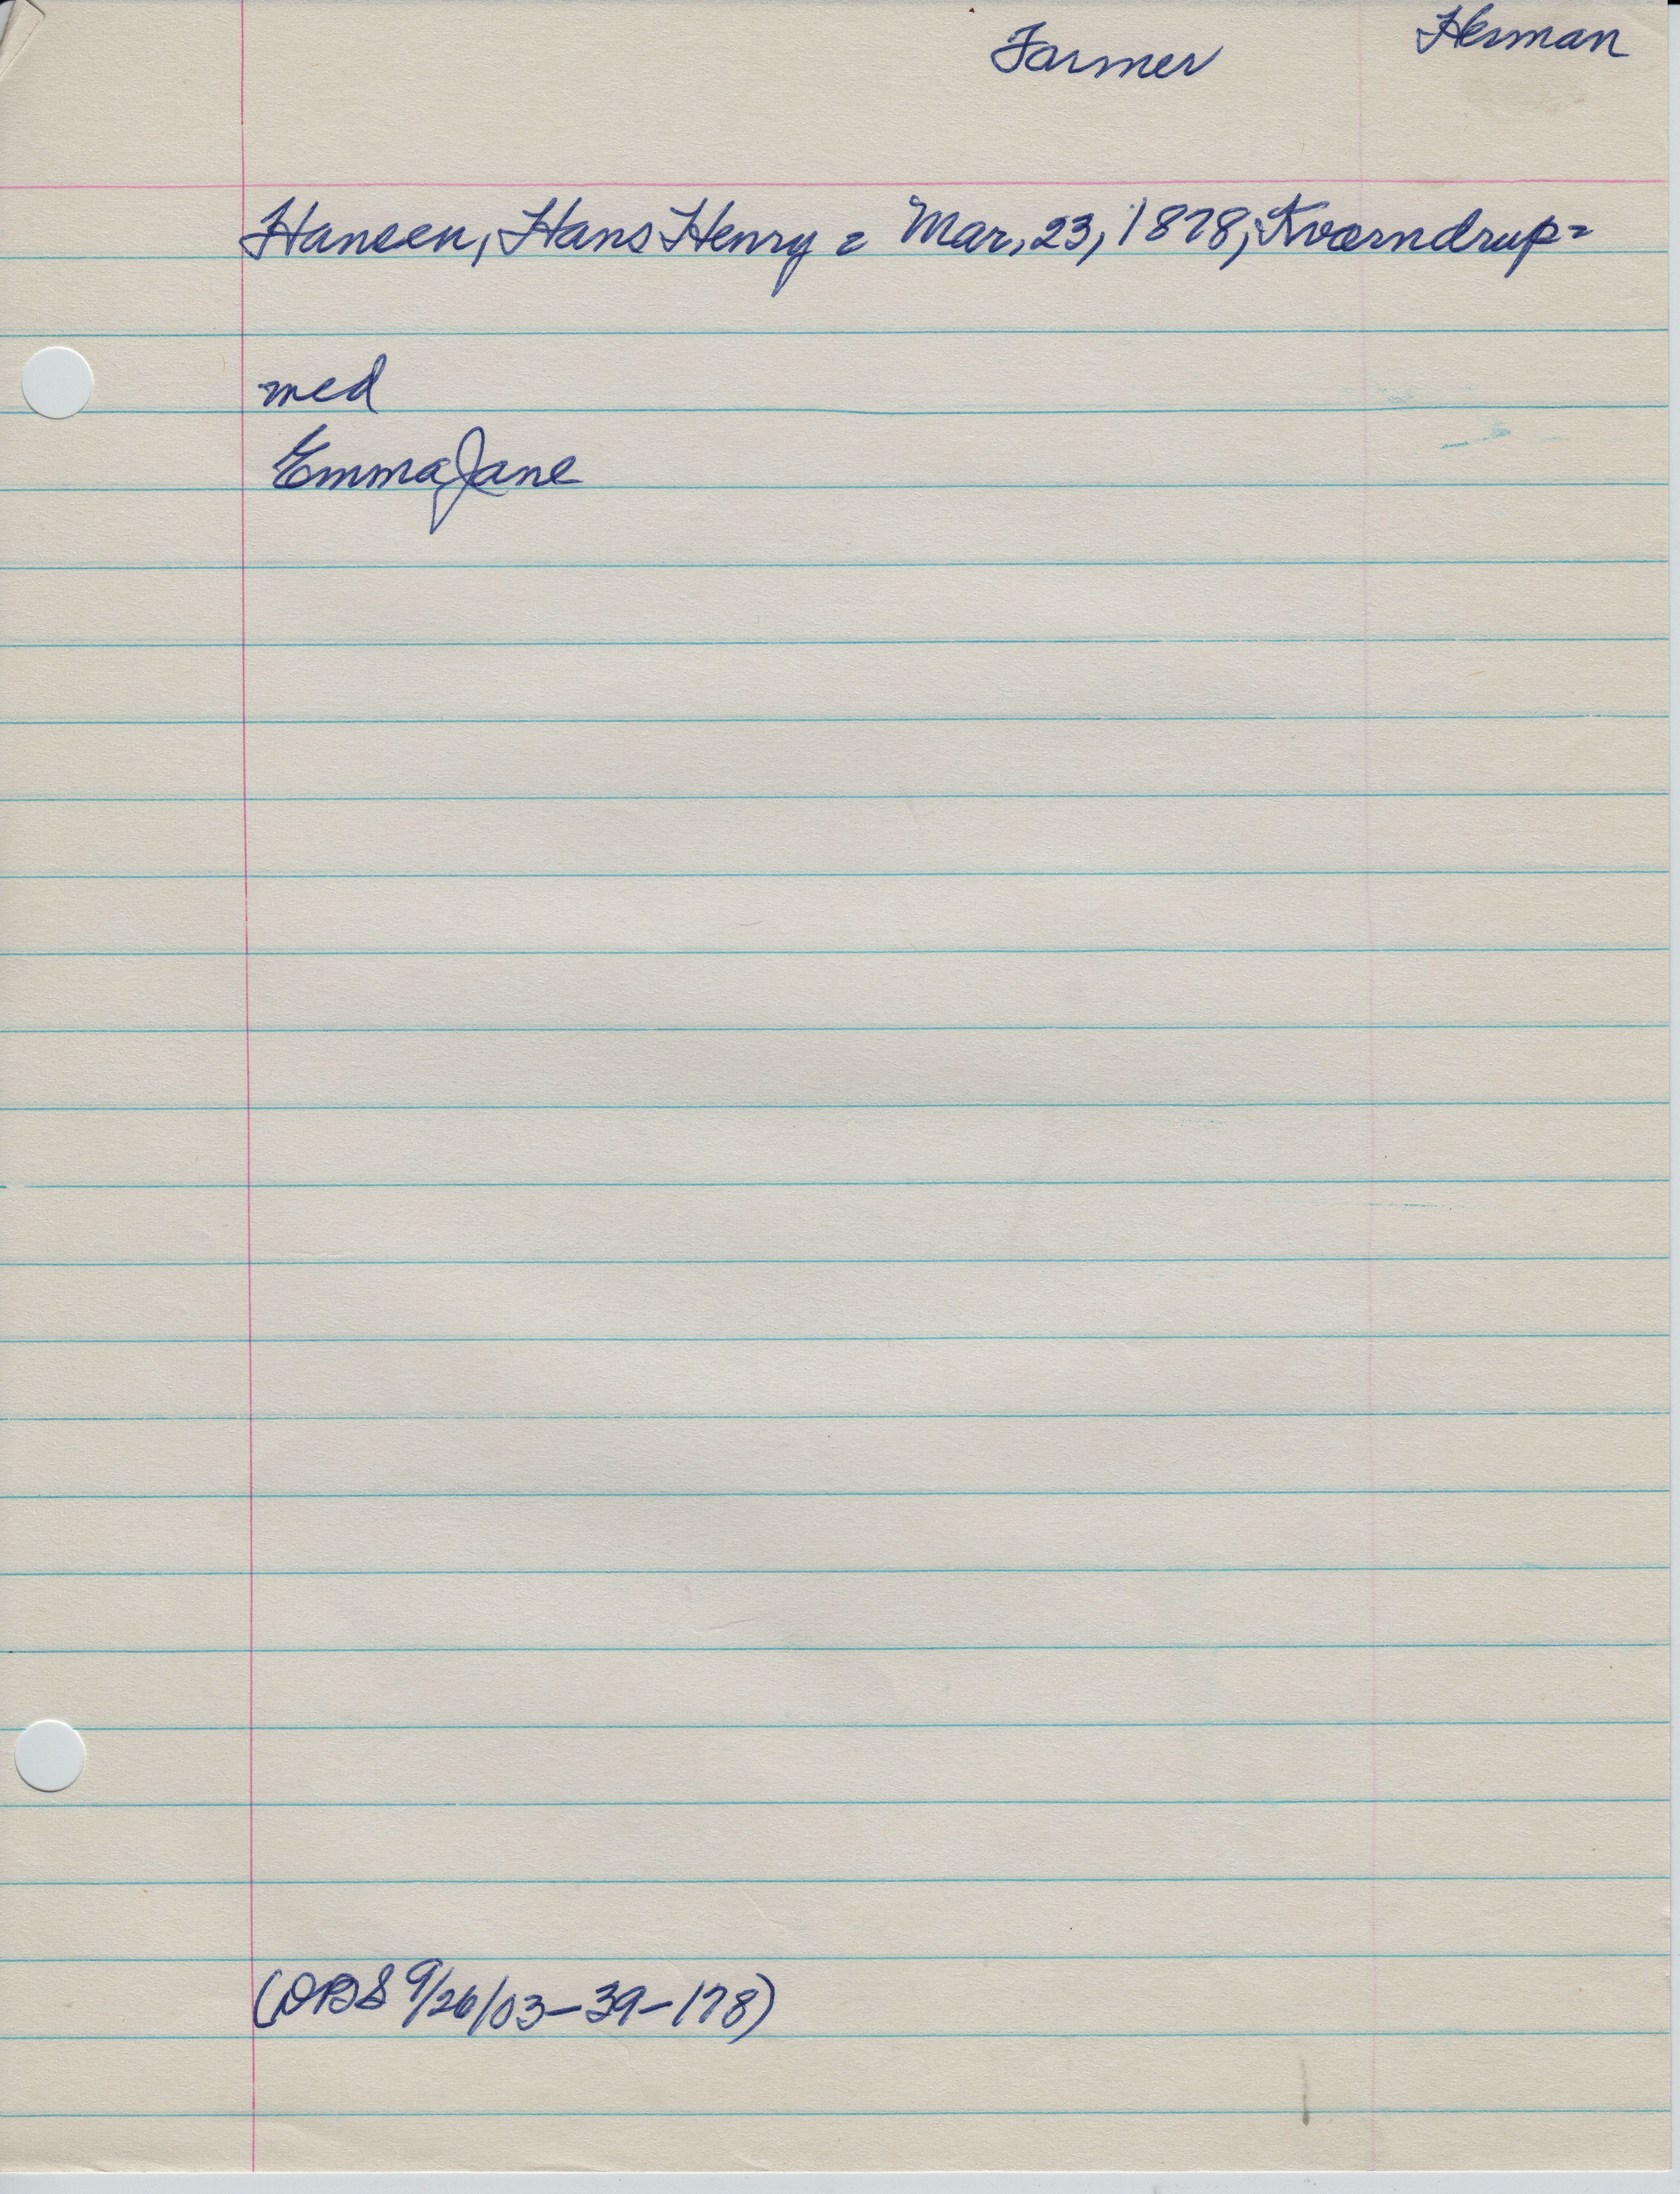 Farmer Herman
Hansen, Hans Henry = Mar. 23, 1878, Kværndrup =
med
Emma Jane
(DBS 9/26/03-39-178)